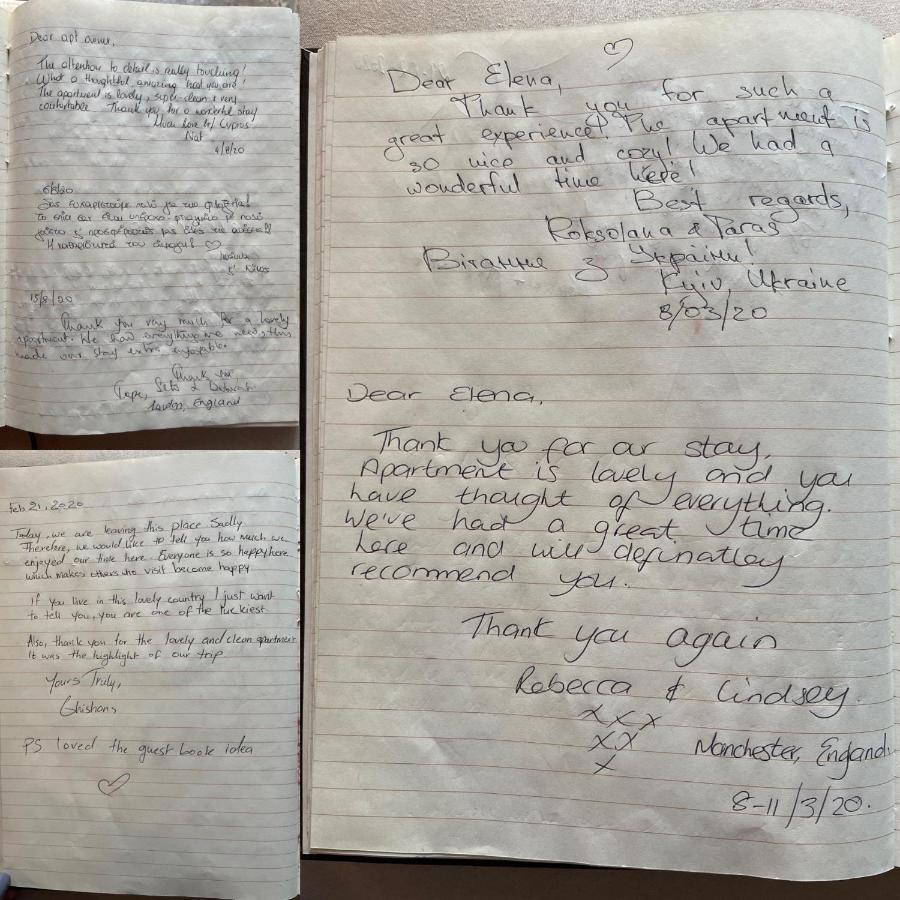 Dear apt owner,
The attention to detail is really touching!
What a thoughtful amazing host you are!
The apartment is lovely, super clean & very
comfortable. Thank you for a wonderful stay!
Much love fr/ Cyprus!
Nat
4/8/20
6/8/20
Σας ευχαριστούμε πολύ για την φιλοξενία!
Το σπίτι σας είναι υπέροχο! φτιαγμένο με πολύ
Η καθαριότητα του
15/8/20
Thank you very much for a lovely
apartment. We had everything we need, this
made our stay extra enjoyable.
Thank you,
London, England
Feb 21, 2020
Today, we are leaving this place Sadly
Therefore, we would like to tell you how much we
enjoyed our time here. Everyone is so happy here
which makes others who visit become happy
If you live in this lovely country I just want
to tell you, you are one of the luckiest
Also, thank you for the lovely and clean apartment
It was the highlight of our trip
Yours Truly,
Ghishans
PS loved the guest book idea
Dear Elena,
Thank you for such a
great experience! The apartment is
so nice and cozy! We had a
wonderful time here!
Best regards,
Roksolana & Taras
Вітання з України!
Kyiv, Ukraine
8/03/20
Dear Elena,
Thank you for our stay,
Apartment is lovely and you
have thought of everything.
We've had a great time
here and will definatley
recommend you.
Thank you again
Rebecca & Lindsey
xxx
xx
x
Manchester, England.
8-11/3/20.